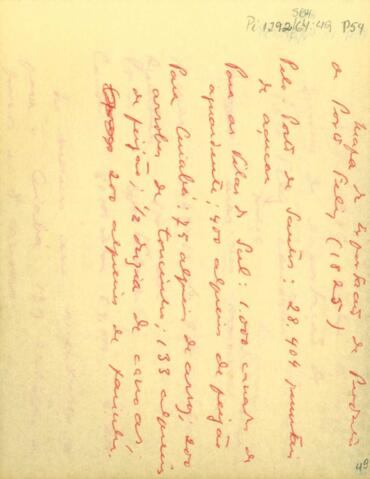 Pi 1292/64:49 P54
Mapa de Exportação de Produtos
de Porto Feliz (1825)
Pelo Porto de Santos: 28.404
de açucar
Para as Vilas do Sul: 1.000 canadas de
aguardente; 400 alqueires de feijão
Para Cuiabá: 75 alqueires de arroz; 200
arrobas de toucinho; 133 alqueires
de feijão; 1/2 duzia de canoas;
200 alqueires de farinha.
49